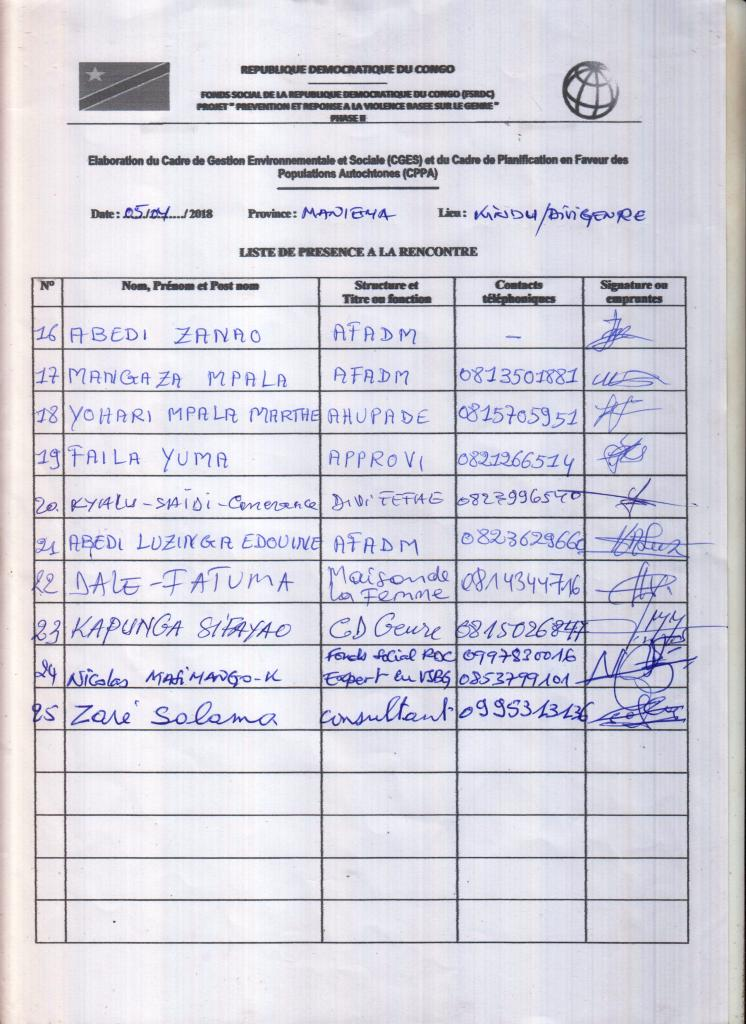 REPUBLIQUE DEMOCRATIQUE DU CONGO
FONDS SOCIAL DE LA REPUBLIQUE DEMOCRATIQUE DU CONGO (FSRDC)
PROJET " PREVENTION ET REPONSE A LA VIOLENCE BASEE SUR LE GENRE "
PHASE II
Elaboration du Cadre de Gestion Environnementale et Sociale (CGES) et du Cadre de Planification en Faveur des
Populations Autochtones (CPPA)
Date : 05/04/2018 Province : MANIEMA Lieu : KINDU/DIVIGENRE
LISTE DE PRESENCE A LA RENCONTRE
N° Nom, Prénom et Post nom Structure et Titre ou fonction Contacts téléphoniques Signature ou empruntes
16 ABEDI ZANAO AFADM —
17 MANGAZA MPALA AFADM 0813501881
18 YOHARI MPALA MARTHE AHUPADE 0815705951
19 FAILA YUMA APPROVI 0821266514
20. KYALU-SAÏDI- DIVIFEFAE
21 ABEDI LUZINGA EDOUINE AFADM 082362966
22 DALE-FATUMA Maison de la Femme 0814344716
23 KAPUNGA SIFAYAO CD Genre 0815026847
24 Nicolas MASIMANGO-K Fonds Social RDC 0997830016
Expert en VSBG 0853799101
25 Zaré Salama consultant 0995313136